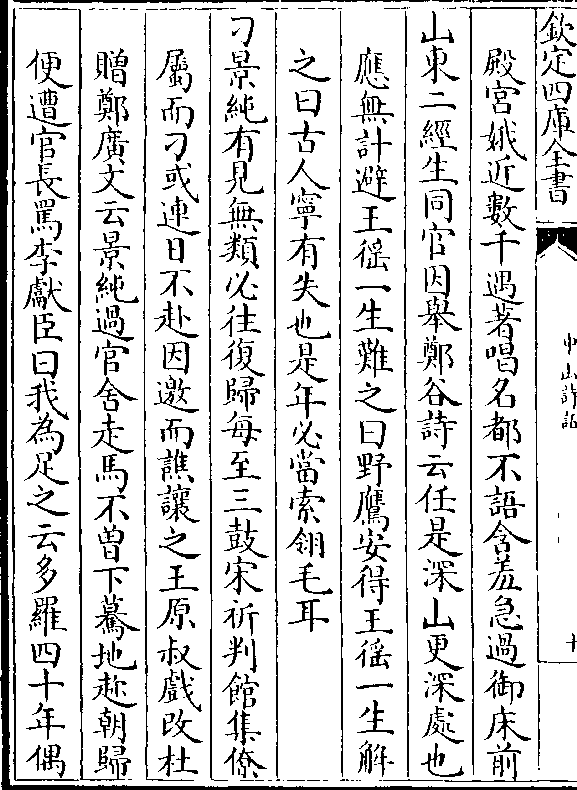 欽定四庫全書
中山詩話
十
殿宮娥近數千遇著唱名都不語含羞急過御床前
山東二經生同官因舉鄭谷詩云任是深山更深處也
應無計避王徭一生難之曰野鷹安得王徭一生解
之曰古人寧有失也是年必當索翎毛耳
刁景純有見無類必往復歸每至三鼓宋祈判館集僚
屬而刁或連日不赴因邀而譙讓之王原叔戲改杜
贈鄭廣文云景純過官舍走馬不曾下驀地趂朝歸
便遭官長罵李獻臣曰我為足之云多羅四十年偶